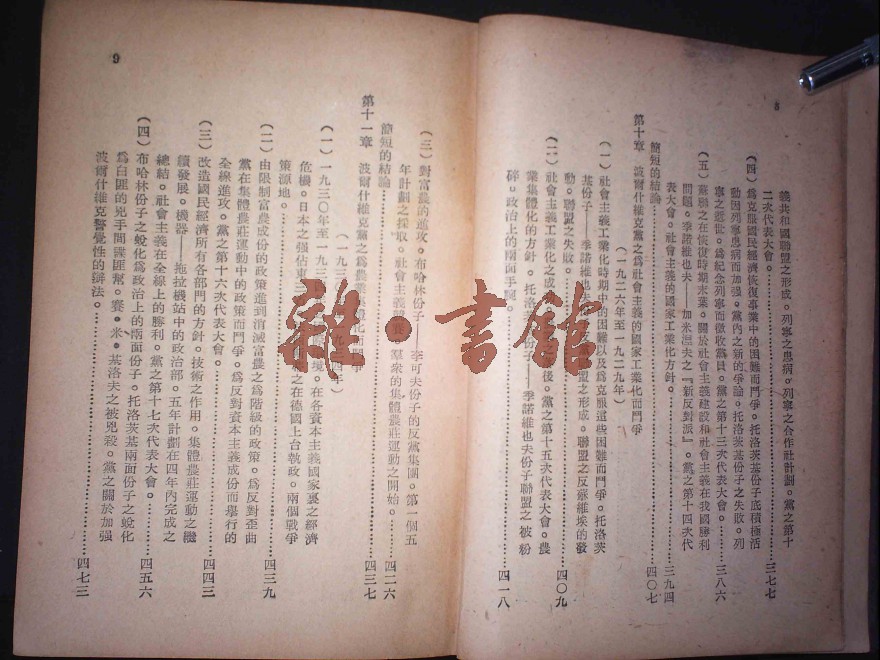 8
義共和國聯盟之形成。列寧之患病。列寧之合作社計劃。黨之第十
二次代表大會。 三七七
(四)爲克服國民經濟恢復事業中的困難而鬥爭。托洛茨基份子底積極活
動因列寧患病而加强。黨內之新的爭論。托洛茨基份子之失敗。列
寧之逝世。爲紀念列寧而徵收黨員。黨之第十三次代表大會。 三八六
(五)蘇聯之在恢復時期末葉。關於社會主義建設和社會主義在我國勝利
問題。季諾維也夫——加米湼夫之『新反對派』。黨之第十四次代
表大會。社會主義的國家工業化方針。 三九四
簡短的結論 四〇七
第十章 波爾什維克黨之爲社會主義的國家工業化而鬥爭
(一九二六年至一九二九年)
(一)社會主義工業化時期中的困難以及爲克服這些困難而鬥爭。托洛茨
基份子——季諾維也夫 聯盟之形成。聯盟之反蘇維埃的發
動。聯盟之失敗。 四〇九
(二)社會主義工業化之成 後。黨之第十五次代表大會。農
業集體化的方針。托洛茨基份子——季諾維也夫份子聯盟之被粉
碎。政治上的兩面手腕。 四一八
9
(三)對富農的進攻。布哈林份子——李可夫份子的反黨集團。第一個五
年計劃之採取。社會主義競賽。羣衆的集體農莊運動之開始。 四二六
簡短的結論 四三七
第十一章 波爾什維克黨之爲農業集體化 鬥爭
(一九三 四年)
(一)一九三〇年至一九三 境。在各資本主義國家裏之經濟
危機。日本之强佔東 之在德國上台執政。兩個戰爭
策源地。 四三九
(二)由限制富農成份的政策進到消滅富農之爲階級的政策。爲反對歪曲
黨在集體農莊運動中的政策而鬥爭。爲反對資本主義成份而舉行的
全線進攻。黨之第十六次代表大會。 四四三
(三)改造國民經濟所有各部門的方針。技術之作用。集體農莊運動之繼
續發展。機器——拖拉機站中的政治部。五年計劃在四年內完成之
總結。社會主義在全線上的勝利。黨之第十七次代表大會。 四五六
(四)布哈林份子之蛻化爲政治上的兩面份子。托洛茨基兩面份子之蛻化
爲白匪的兇手間諜匪幫。賽·米·基洛夫之被兇殺。黨之關於加强
波爾什維克警覺性的辦法。 四七三
雜·書館